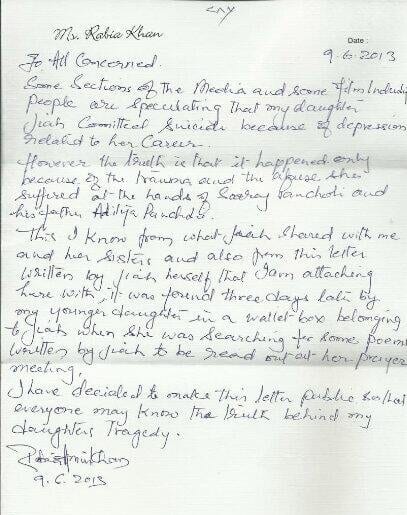 Mrs. Rabia Khan
Date :
9.6.2013
To All Concerned.
Some Sections of the Media and some film Industry
People are speculating that my daughter
Jiah Committed Suicide because of depression
related to her Career.
However the truth is that it happened only
because of the trauma and the abuse she
suffered at the hands of Sooraj Pancholi and
her father Aditya Pancholi.
This I know from what Jiah Shared with me
and her sisters and also from this letter
written by Jiah herself that I am attaching
here with, it was found three days late by
my younger daughter in a wallet box belonging
to Jiah when she was Searching for some poems
written by Jiah to be read out at her prayer
meeting.
I have decided to make this letter public so that
everyone may know the truth behind my
daughters Tragedy.
9.6.2013